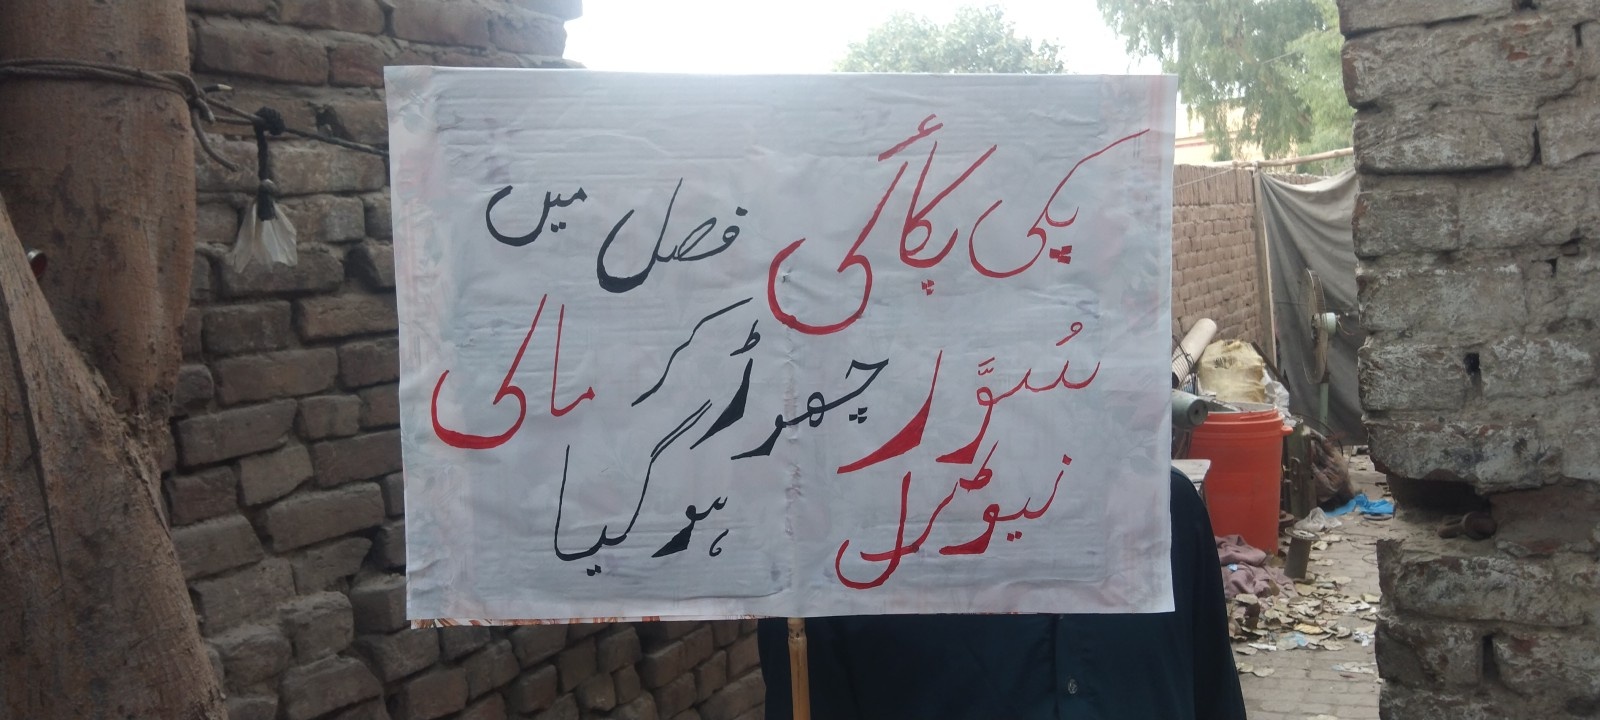 پکی پکائی فصل میں
سُوَّر چھوڑ کر مالی
نیوٹرل ہو گیا